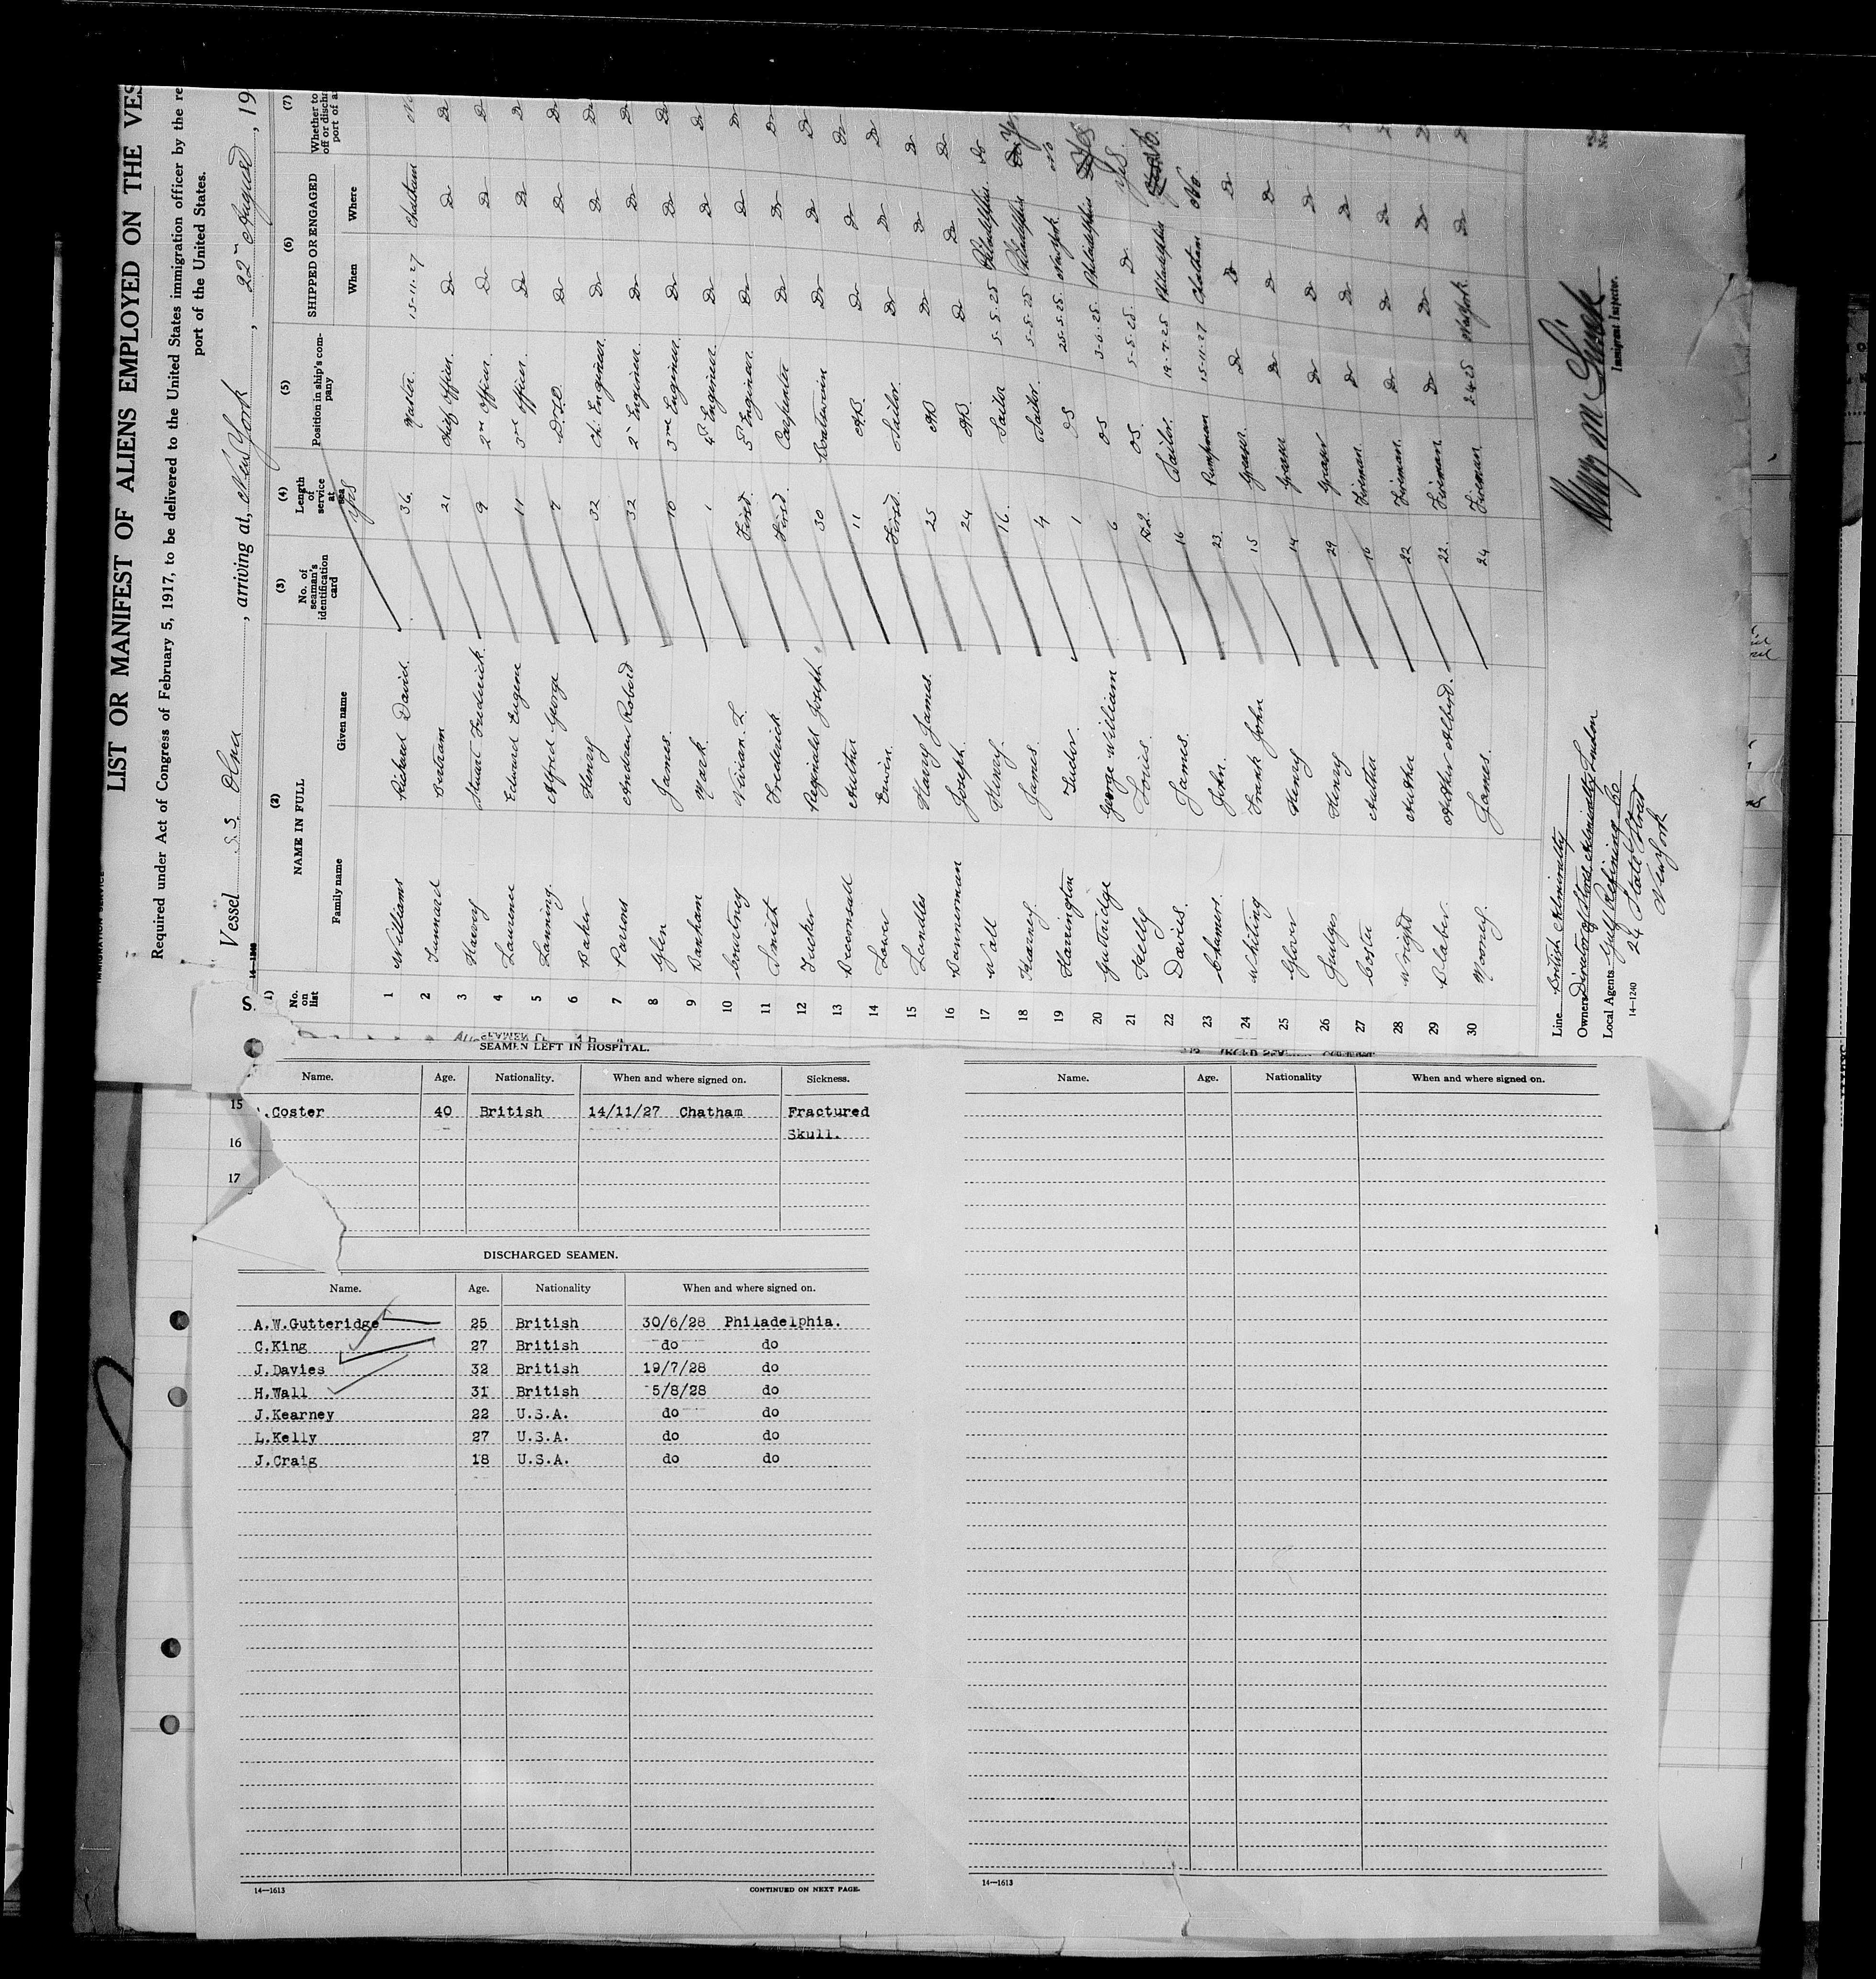 LIST OR MANIFEST OF ALIENS EMPLOYED ON THE VES
Required under Act of Congress of February 5, 1917, to be delivered to the United States immigration officer by the re
port of the United States.
Vessel S.S. Olna, arriving at, New York, 22 August, 19
(1) (2) (3) (4) (5) (6) (7)
No. on list NAME IN FULL No. of seaman's identification card Length of service at sea Position in ship's company SHIPPED OR ENGAGED Whether to
Family name Given name When Where
yrs
1 Williams Richard David. 36. Master. 15-11-27 Chatham No
2 Bertram 21 Chief Officer. Do Do Do
3 Harvey Stuart Frederick. 9 2nd Officer. Do Do Do
4 Edward Eugene 11 3rd Officer. Do Do Do
5 Lanning. Alfred George 7 Do Do Do
6 Baker Henry 32 Ch. Engineer. Do Do Do
7 Parsons Andrew Robert 32 2 Engineer. Do Do Do
8 Glen James. 10 3rd Engineer. Do Do Do
9 Banham Mark. 1 4 Engineer. Do Do Do
10 Courtney Vivian. L. First. 5 Engineer. Do Do Do
11 Smith Frederick First. Carpenter Do Do Do
12 Tucker Reginald Joseph 30 Boatswain Do Do Do
13 Beconsall Arthur 11 AB. Do Do Do
14 Lower Erwin. First. Sailor. Do Do Do
15 Landles Henry James. 25 AB Do Do Do
16 Bannerman Joseph. 24 AB. Do Do Do
17 Wall Henry. 16. Sailor 5-5-25 Philadelphia. Do
18 Kearney James. 4 Sailor. 5-5-25 Philadelphia
19 Harrington Tudor. 1 OS 25-5-25. New York. No
20 Guttridge George William 6 OS 3-6-25. Philadelphia Yes
21 Kelly Louis. OS. 5-5-25. Do Yes.
22 Davis. James. 16 Sailor. 19-7-25 Philadelphia
23 Chalmers. John. 23. Pumpman 15-11-27 Chatham No.
24 Whiting Frank John 15 Greaser. Do Do Do
25 Glover Henry 14 Greaser Do Do Do
26 Henry 29 Greaser Do Do Do
27 Coster Arthur 16 Fireman. Do Do Do
28 Wright Arthur 22 Fireman. Do Do Do
29 Blaber Arthur Albert. 22. Fireman. Do Do Do
30 Mooney. James. 24 Fireman. 2-4-25 New York. Do Do
Line British Admiralty
Owners Director of Stores Admiralty London
Local Agents Gulf Refining Co
24 State Street
New York
14—1240
Immigrant Inspector.
SEAMEN LEFT IN HOSPITAL.
Name. Age. Nationality. When and where signed on. Sickness.
15 .Coster 40 British 14/11/27 Chatham Fractured
16 Skull.
17
DISCHARGED SEAMEN.
Name. Age. Nationality When and where signed on.
A.W.Gutteridge 25 British 30/6/28 Philadelphia.
C.King 27 British do do
J.Davies 32 British 19/7/28 do
H.Wall 31 British 5/8/28 do
J.Kearney 22 U.S.A. do do
L.Kelly 27 U.S.A. do do
J.Craig 18 U.S.A. do do
14—1613 CONTINUED ON NEXT PAGE.
Name. Age. Nationality When and where signed on.
14—1613